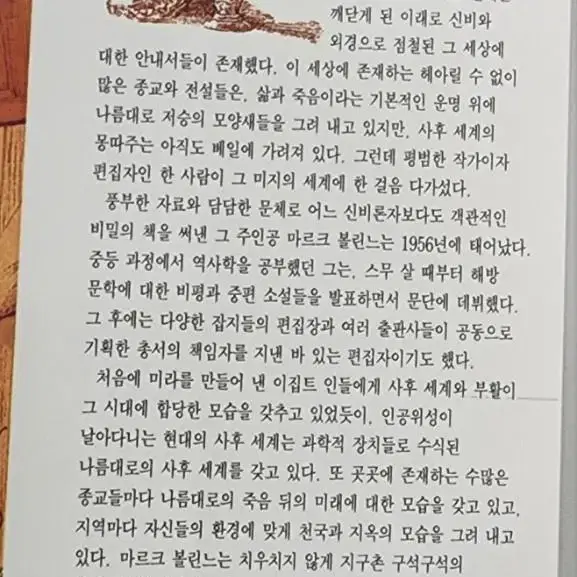 깨닫게 된 이래로 신비와
외경으로 점철된 그 세상에
대한 안내서들이 존재했다. 이 세상에 존재하는 헤아릴 수 없이
많은 종교와 전설들은, 삶과 죽음이라는 기본적인 운명 위에
나름대로 저승의 모양새들을 그려 내고 있지만, 사후 세계의
몽따주는 아직도 베일에 가려져 있다. 그런데 평범한 작가이자
편집자인 한 사람이 그 미지의 세계에 한 걸음 다가섰다.
풍부한 자료와 담담한 문체로 어느 신비론자보다도 객관적인
비밀의 책을 써낸 그 주인공 마르크 볼린느는 1956년에 태어났다.
중등 과정에서 역사학을 공부했던 그는, 스무 살 때부터 해방
문학에 대한 비평과 중편 소설들을 발표하면서 문단에 데뷔했다.
그 후에는 다양한 잡지들의 편집장과 여러 출판사들이 공동으로
기획한 총서의 책임자를 지낸 바 있는 편집자이기도 했다.
처음에 미라를 만들어 낸 이집트 인들에게 사후 세계와 부활이
그 시대에 합당한 모습을 갖추고 있었듯이, 인공위성이
날아다니는 현대의 사후 세계는 과학적 장치들로 수식된
나름대로의 사후 세계를 갖고 있다. 또 곳곳에 존재하는 수많은
종교들마다 나름대로의 죽음 뒤의 미래에 대한 모습을 갖고 있고,
지역마다 자신들의 환경에 맞게 천국과 지옥의 모습을 그려 내고
있다. 마르크 볼린느는 치우치지 않게 지구촌 구석구석의